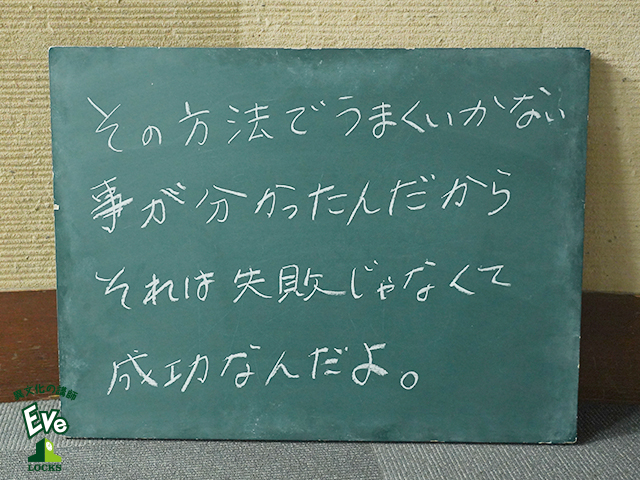 その方法でうまくいかない
事が分かったんだから
それは失敗じゃなくて
成功なんだよ。
異文化の講師
EVe
LOCKS